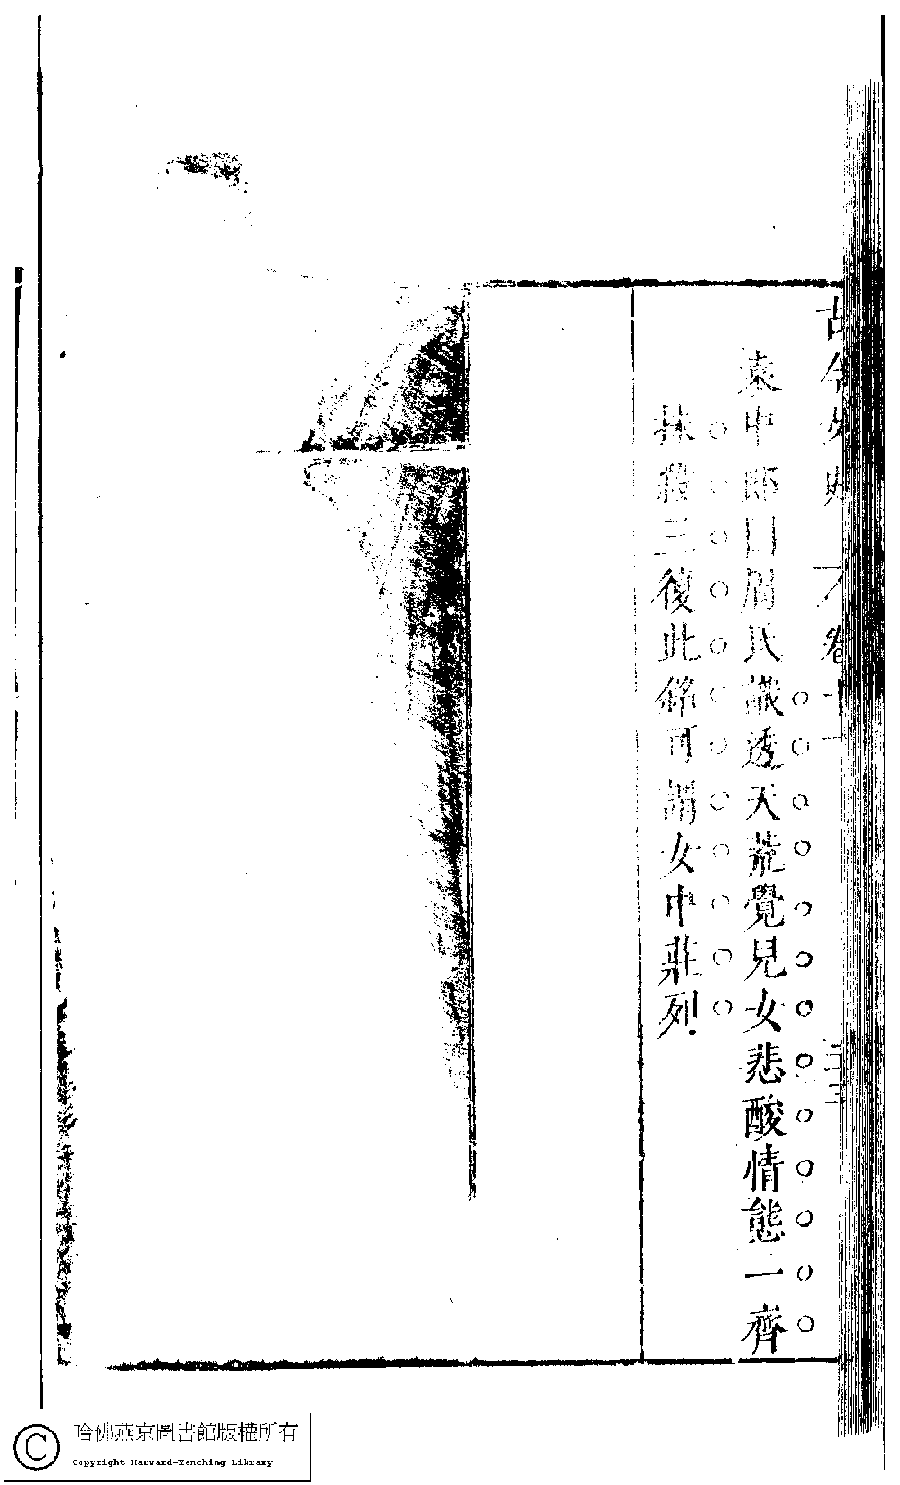 古今女史 卷十 三三
袁中郎曰周氏識透天荒覺兒女悲酸情態一齊
抹殺三復此銘可謂女中莊列
哈佛燕京圖書館版權所有
Copyright Harvard-Yenching Library